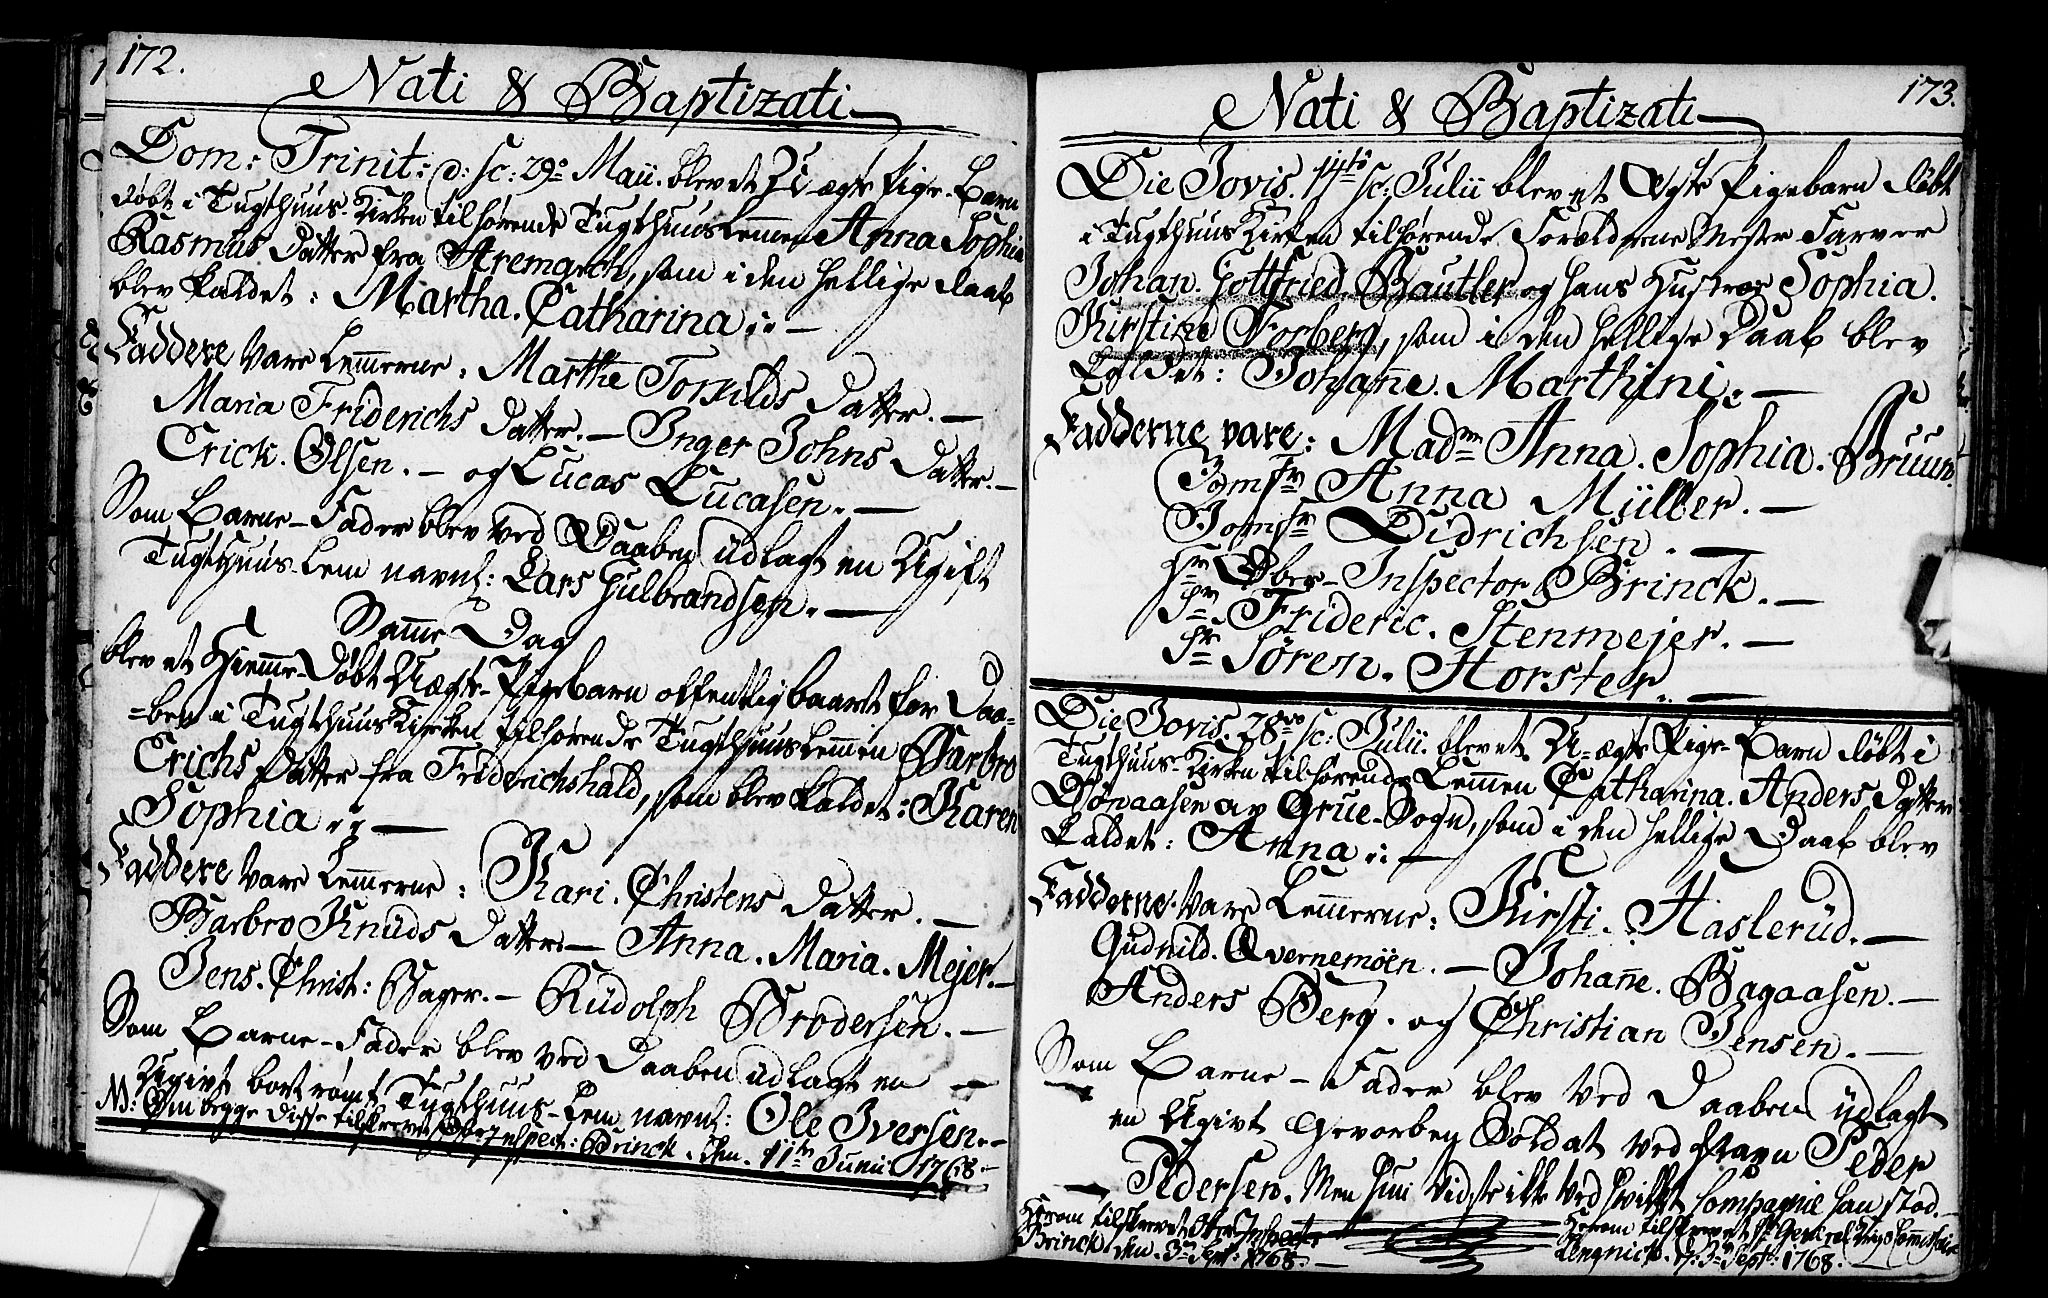 172.
Nati & Baptizati
Dom: Trinit: d: sc: 29de Maii. blev et Uægte Pige-Barn
døbt i Tugthuus-Kirken tilhørende Tugthuuslemmen Anna Sophia
Rasmus Datter fra Aremarch, som i den hellige Daab
blev kaldet: Martha. Catharina
Faddere vare Lem̅erne: Marthe Torkilds Datter.
Maria Friderichs Datter. Inger Johns Datter.
Erick. Olsen. og Lucas Lucasen.
Som Barne-Fader blev ved Daaben udlagt en Ugift
Tugthuus-Lem navnl: Lars Gulbrandsen.
Sam̅e Dag
blev et Hiem̅e-Døbt Uægte-Pigebarn offentlig baaret for Daa-
=ben i Tugthuus Kirken tilhørende Tugthuuslem̅en Barbro
Erichs Datter fra Friderichshald, som blev kaldet: Karen
Sophia
Faddere vare Lem̅erne: Kari. Christens Datter.
Barbro Knuds Datter Anna. Maria. Mejer.
Jens. Christ: Bager. Rudolph Brodersen.
Som Barne-Fader blev ved Daaben udlagt en
Ugivt bortrømt Tugthuus-Lem navnl: Ole Iversen.
N: Om begge disse tilskrevet Ober Inspect: Brinck. den. 11te Junii 1768.
173.
Nati & Baptizati
Die Jovis. 14de sc: Julii blev et Ægte Pigebarn døbt
i Tugthuus Kirken tilhørende Forældrene Mester Farver
Johan. Gottfried. Bautler og hans Hustroe Sophia.
Kirstine Forberg, som i den hellige Daab blev
kaldet: Johan̅e. Marthini.
Fadderne vare: Madm Anna. Sophia. Bruun.
Jomfr Anna Müller.
Jomfr Didrichsen.
Hr Ober-Inspector Brinck.
Sr Frideric. Stenmejer.
Sr Søren. Horster.
Die Jovis. 28de sc: Julii. blev et U-ægte Pige-Barn døbt i
Tugthuus-Kirken tilhørende Lem̅en Catharina. Anders Datter
af Grue-Sogn, som i den hellige Daab blev
kaldet: Anna
Fadderne vare Lem̅erne: Kirsti. Haslerud.
Gudnild. Qvernemöen. Johan̅e. Bagaasen.
Anders Berg. og Christian Jensen.
Som Barne-Fader blev ved Daaben udlagt
en Ugivt Gevorben Soldat ved Navn Peder
Pedersen. Men hun vidste ikke ved hvilket Compagnie han stod.
Herom tilskrevet Ober Inspecter
Brinck den. 3de Sept: 1768.
Herom tilskrevet Hr General Krigs Commissair
Lengnick. d: 3de Sept: 1768.